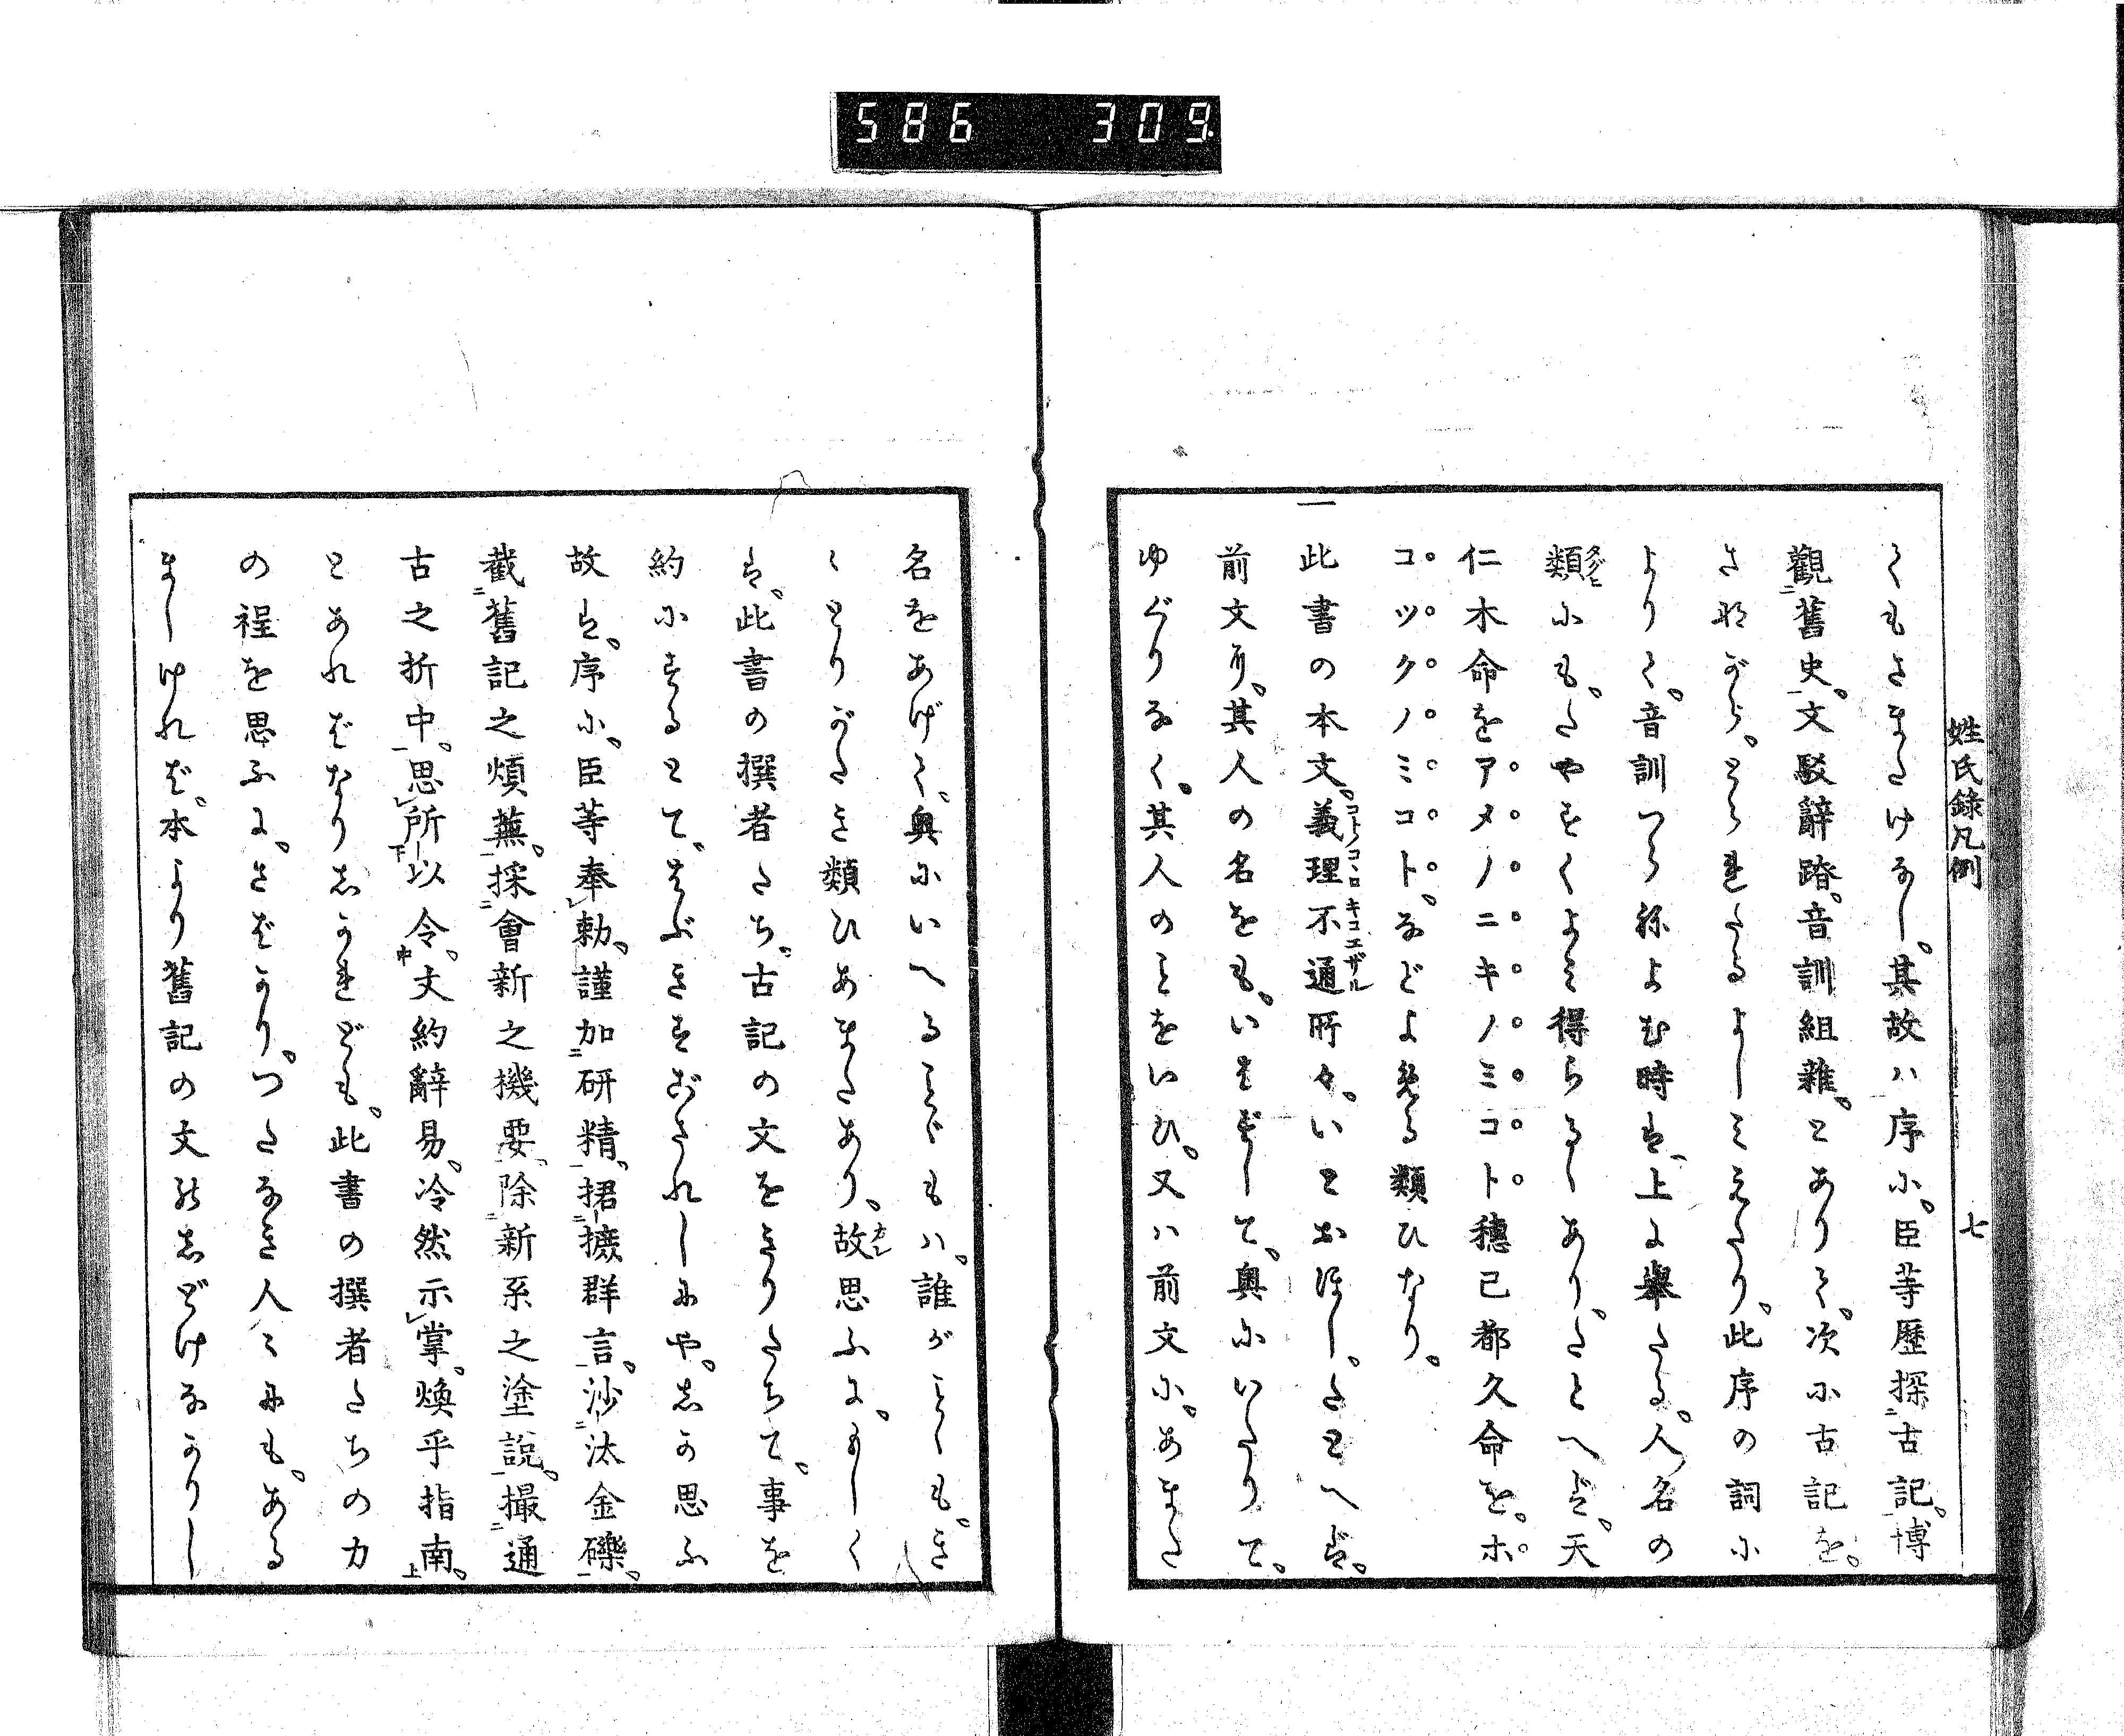 586 309
姓氏錄凡例
七
くもさまたげなし。其故ハ序に。臣等歷探古記。博
觀舊史。文駁辭踳。音訓組雜。とありて。次に古記を。
さながら。とられたるよしみえたり。此序の詞に
よりて。音訓つらねよむ時は、上に擧たる。人名の
類にも。たやすくよみ得らるゝあり。たとへば。天
仁木命をアメノニキノミコト穗己都久命を。ホ
コツクノミコト。などよめる類ひなり。
一 此書の本文。義理不通所々。いとおほし。たとへば。
前文に。其人の名をも。いはずして。奧にいたりて。
ゆくりなく。其人のことをいひ。又ハ前文に。あまた
名をあげて。奧にいへることゞもハ。誰がことゝも。き
ゝとりがたき類ひあまたあり。故思ふに。もしく
は。此書の撰者たち。古記の文をきりたちて。事を
約にするとて。はぶきすぎられしにや。しか思ふ
故は。序に。臣等奉勅。謹加研精。捃摭群言。沙汰金礫。
截舊記之煩蕪。採會新之機要。除新系之塗說。撮通
古之折中。思所以令。文約辭易。冷然示掌。煥乎指南。
とあればなりしかれども。此書の撰者たちの力
の程を思ふに。さばかり。つたなき人ゝにも。ある
ましければ。本より舊記の文のしどけなかりし